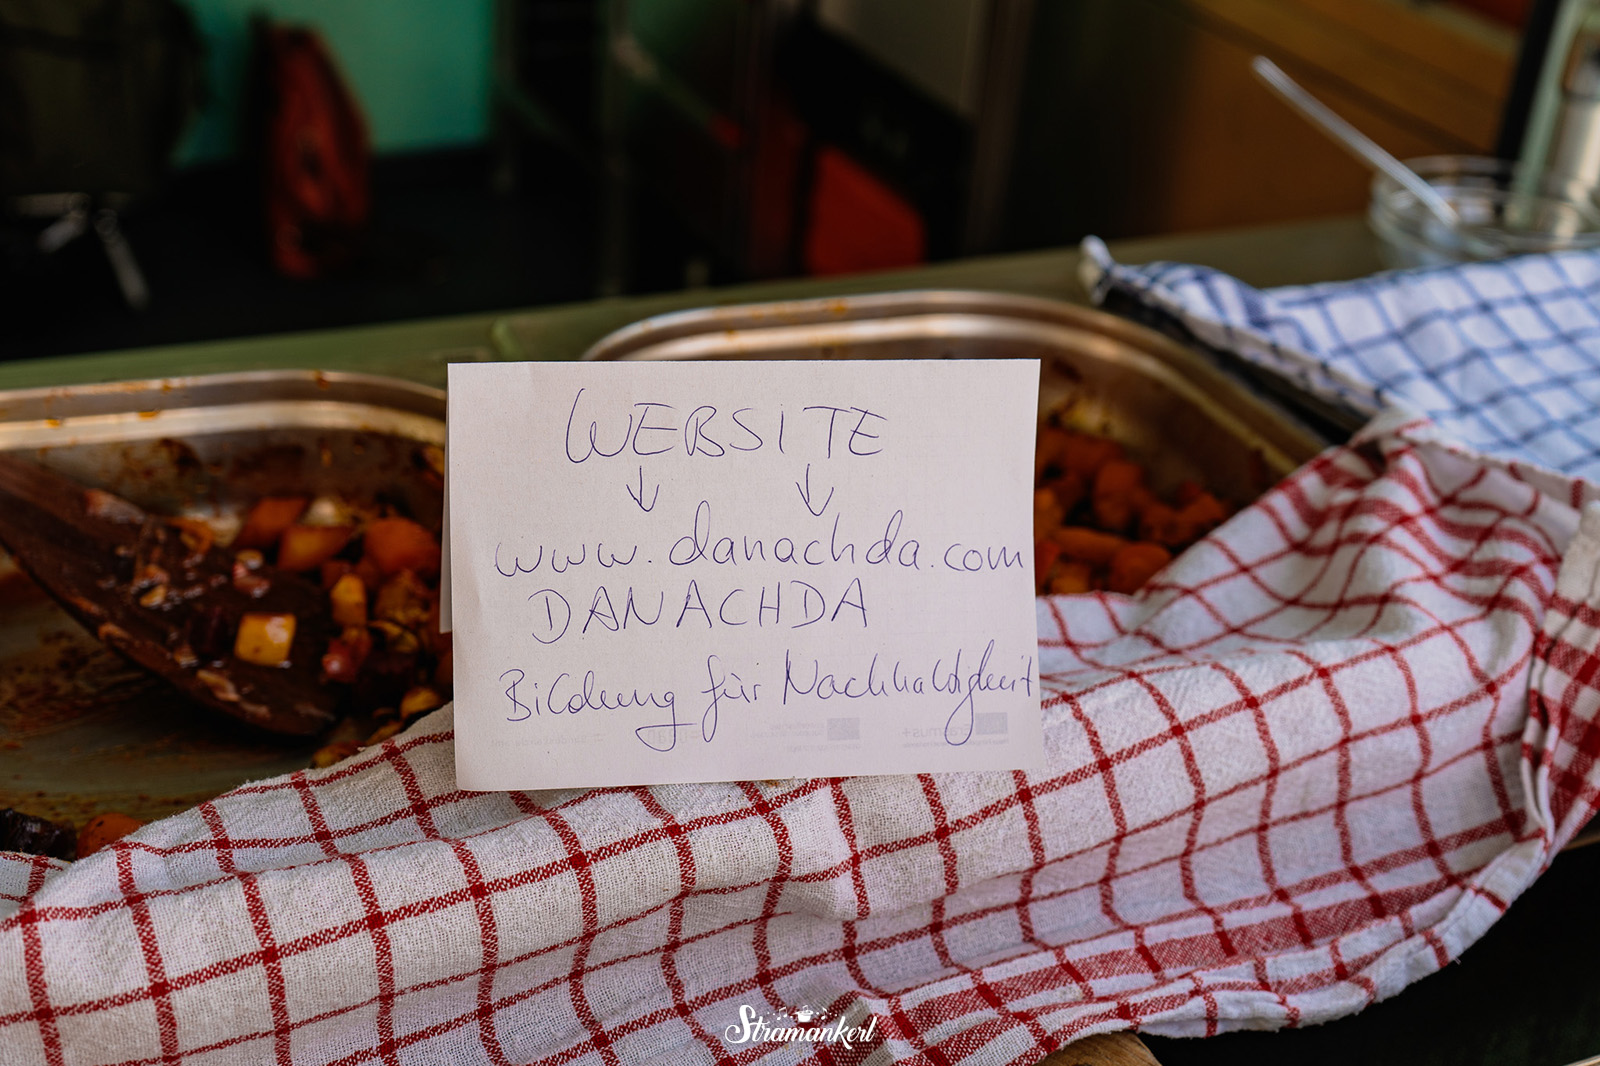 WEBSITE
↓ ↓
www.danachda.com
DANACHDA
Bildung für Nachhaltigkeit
Stramankerl